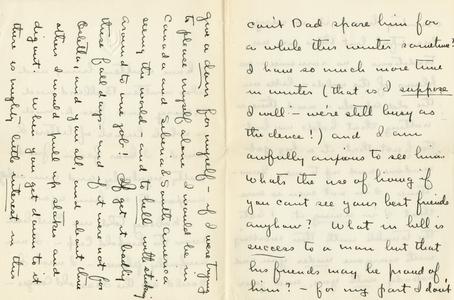 can't Dad spare him for
a while this winter sometime?
I have so much more time
in winter (that is I suppose
I will - we're still busy as
the deuce!) and I am
awfully anxious to see him.
Whats the use of living if
you can't see your best friends
anyhow? What in hell is
success to a man but that
his friends may be proud of
him? - for my part I don't
give a damn for myself - if I were trying
to please myself alone I would be in
Canada and Siberia & South America
seeing the world and to hell with sticking
around to one job! I get it badly
these fall days - and if it were not for
and you all, and about three
others I would pull up stakes and
dig out. When you get down to it
there is mighty little interest in this